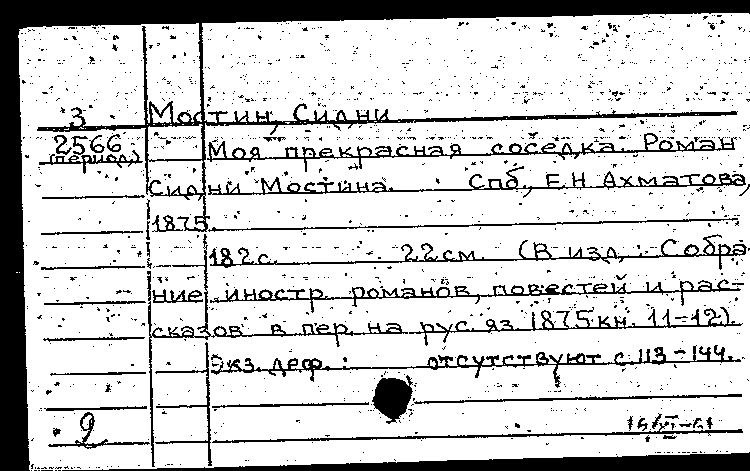 3 Мостин, Сидни
2566 Моя прекрасная соседка. Роман
(период.)
Сидни Мостина. Спб., Е.Н Ахматова,
1875.
182с. 22см. (В изд.: Собра-
ние иностр. романов, повестей и рас-
сказов в пер. на рус. яз. 1875 кн. 11-12).
Экз. деф.: отсутствуют с. 113-144.
2